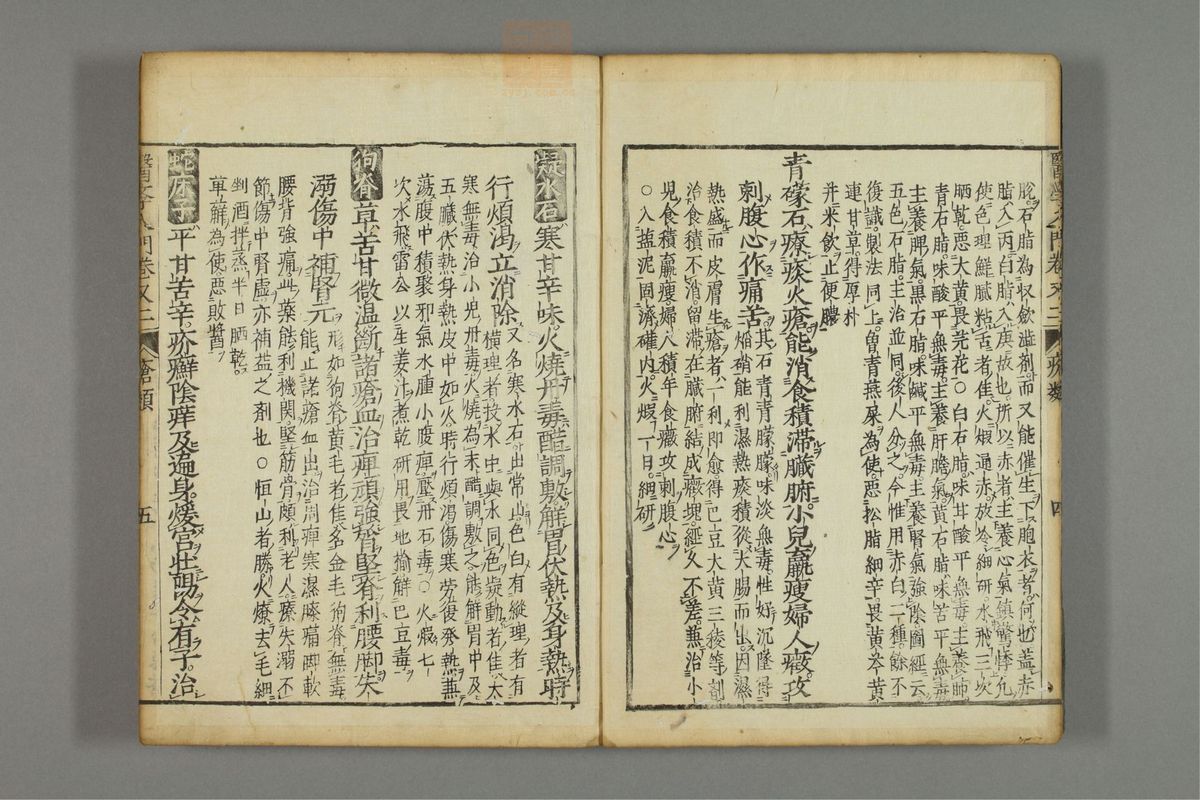 醫學入門卷又二 瘡類 四
脫石脂為収歛溢剤而又能催生下胞衣者何也盖赤
脂入丙白脂入庚故也所以赤者主養心氣鎮驚悸凢
使色理鮮膩粘舌者佳火煆通赤放冷細研水飛三次
晒乾惡大黄畏芫花○白石脂味甘酸平無毒主養肺
青石脂味酸平無毒主養肝膽氣黄石脂味苦平無毒
主養脾氣黒石脂味鹹平無毒主養腎氣強陰圖經云
五色石脂主治並同後人分之今惟用赤白二種餘不
復識製法同上曽青燕屎為使惡松脂細辛畏黄芩黄
連甘草得厚朴
并米飲止便膿
青礞石療痰火瘡能消食積滯臓腑小兒羸瘦婦人癥攻
刺腹心作痛苦其石青青朦朦味淡無毒性好沉隆得
焔硝能利濕熱痰積從大腸而出因濕
熱盛而皮膚生瘡者一利即愈得巴豆大黄三稜等劑
治食積不消留滞在臓腑結成癥塊經久不差兼治小
児食積羸瘦婦人積年食癥攻刺腹心
○入盐泥固濟礶内火煆一日細研
凝水石寒甘辛味火燒丹毒醋調敷解胃伏熱及身熱時
行煩渇立消除又名寒水石出常山色白有縱理者有
横理者投水中與水同色炭動者佳大
寒無毒治小児丹毒火燒為末醋調敷之能解胃中及
五臓伏熱身熱皮中如火時行煩渇傷寒労復発熱兼
蕩腹中積聚邪氣水腫小腹痺壓丹石毒○火煆七
次水飛雷公以生姜汁煮乾研用畏地揄解巴豆毒
狗脊草苦甘微温断諸瘡血治痺頑強膂堅脊利腰脚失
溺傷中補腎元形如狗脊黄毛者佳名金毛狗脊無毒
能止諸瘡血出治周痺寒濕膝痛脚軟
腰背強痛此薬能利機関堅筋骨頗利老人療失溺不
節傷中腎虛亦補益之剤也○恒山者勝火燎去毛細
剉酒拌蒸半日晒乾
萆薢為使惡敗醬
蛇床子平甘苦辛疥癬陰痒及遍身煖宫壮陽令有子治
醫學入門卷又二 瘡類 五